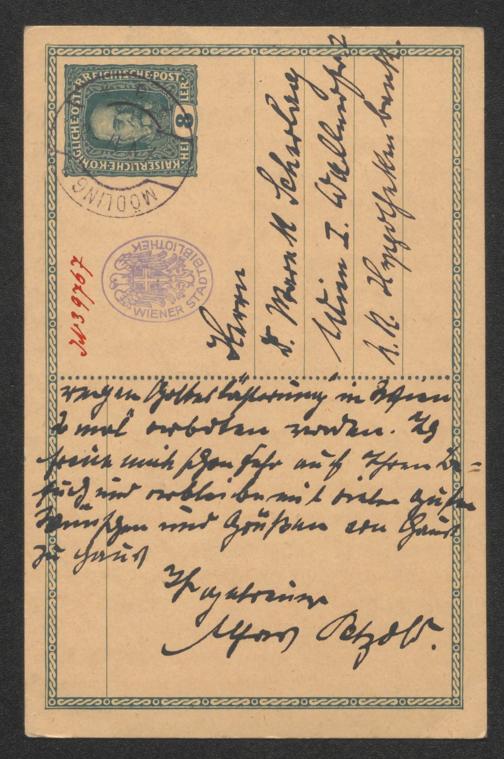 KAISERLICHE·KÖNIGLICHE·ÖSTERREICHISCHE·POST
8 HELLER
MÖDLING
WIENER STADTBIBLIOTHEK
JN 39767
Herrn
Wien I.
k.k. Hypothekenbank.
wegen Gotteslästerung in Wien
2 mal verboten worden. Ich
freue mich schon sehr auf Ihren Be=
such und verbleibe mit vielen guten
Wünschen und Grüßen von Haus
zu Haus
Ihr getreuer
Alfons Petzold.